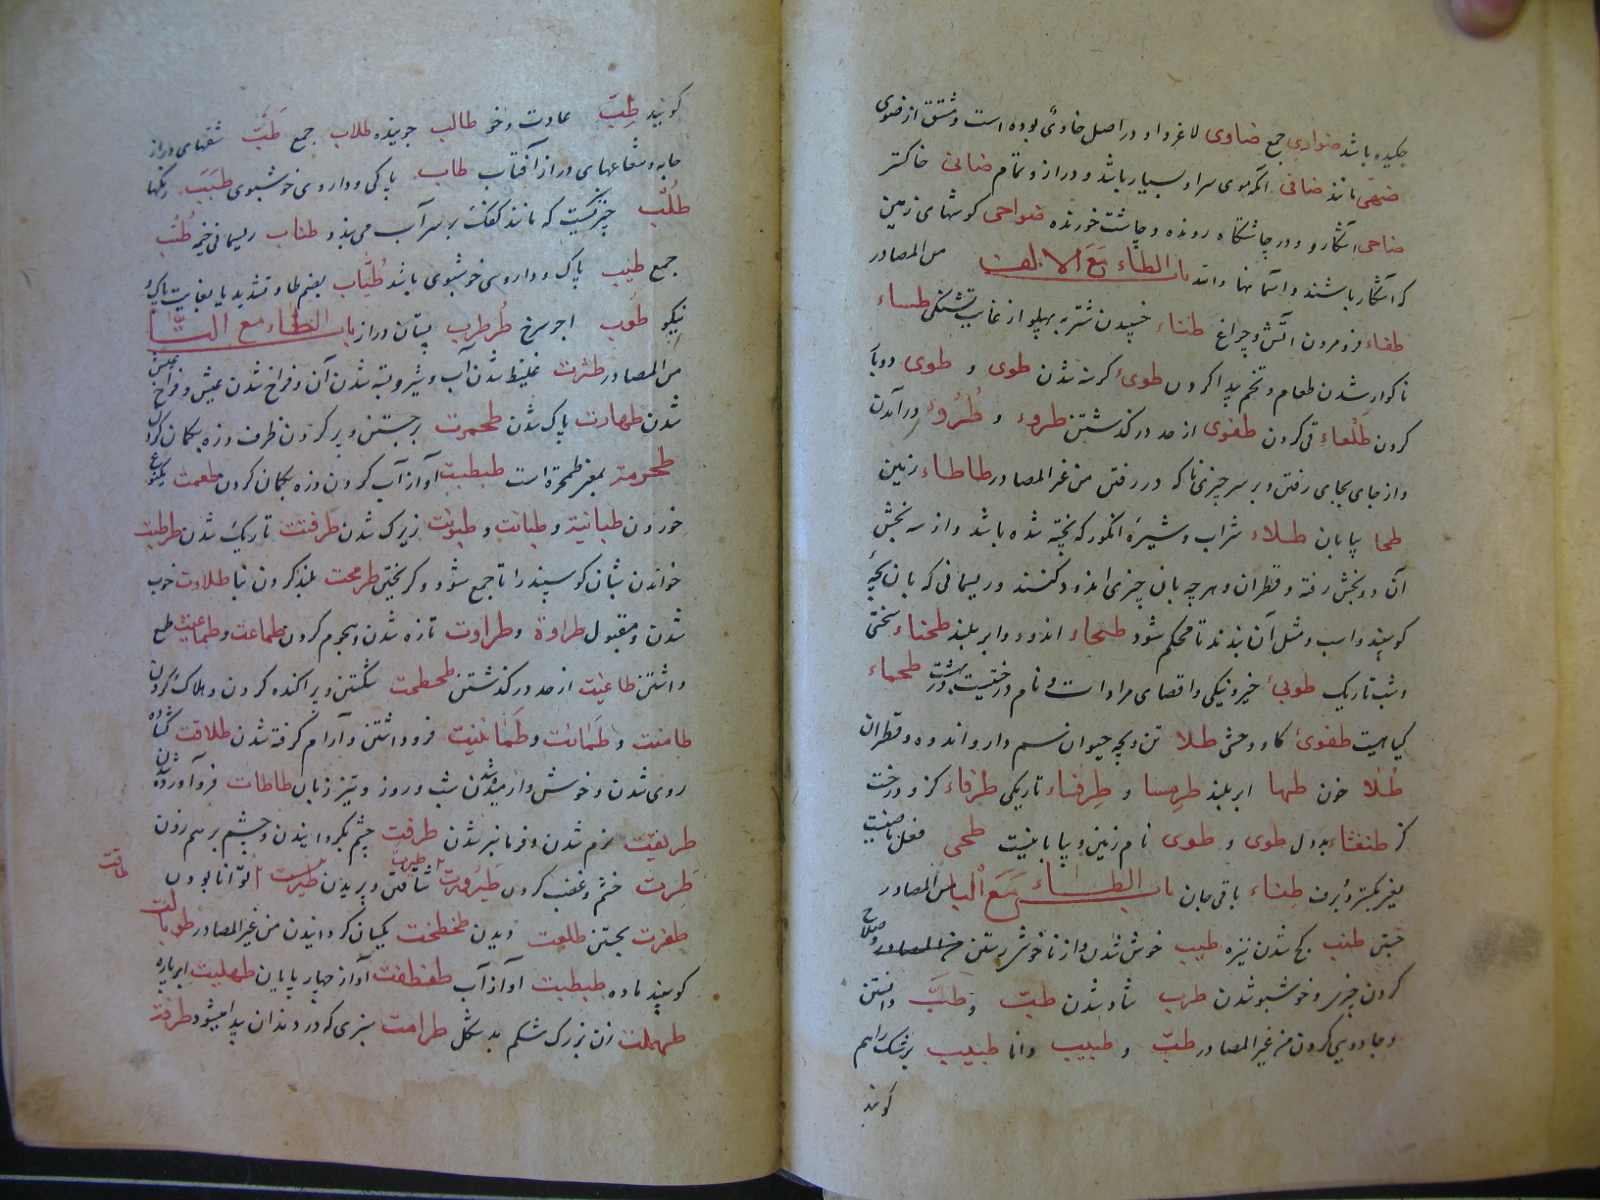 چکیده باشد ضوادی جمع ضاوی لاغر و او در اصل ضاوئی بوده است و مشتق از ضوی
ضهی مانند ضافی آنکه موی سر او بسیار باشد و دراز و تمام ضانی خاکستر
ضاحی آشکار و در چاشتگاه رونده و چاشت خورنده ضواحی گوشهای زمین
که آشکار باشند و آسمانها والله باب الطاء مع الالف من المصادر
طفاء فرو مردن آتش و چراغ طناء خسپیدن شتر به پهلو از غایت تشنگی طساء
ناگوار شدن طعام و تخم پیدا کردن طوئ گرسنه شدن طوی و طوی دوبا
کردن طلعاء قی کردن طغوی از حد در گذشتن طروء و طُرُوء درآمدن
و از جای بجای رفتن و بر سر چیزی ناگه در رفتن من غیر المصادر طاطاء زمین
طحا بیابان طلاء شراب و شیره انگور که پخته شده باشد و از سه بخش
آن دو بخش رفته و قطران و هر چه بان چیزی اندود کنند و ریسمانی که بان بچه
گوسپند و اسب و مثل آن بندند تا محکم شود طحاء اندود و ابر بلند طخناء سختی
و شب تاریک طوبی خیر و نیکی و اقصای مرادات و نام درختیست در بهشت طحماء
گیاهیست طغوی گاو وحشی طلا تن و بچه حیوان سم دار و اندوه و قطران
طُلا خون طها ابر بلند طرمسا و طرفساء تاریکی طرفاء گز و درخت
گز طنفثاء بددل طوی و طوی نام زمین و بیابانیست طحی
طناء باقی جان باب الطاء مع الباء من المصادر
جستن طنب کج شدن نیزه طیب خوش شدن و از ناخوش رستن و صلاح
کردن چیزی و خوشبو شدن طرب شاد شدن طب و طَبّ دانستن
و جادویی کردن من غیر المصادر طبّ و طبیب دانا طبیب پزشک را هم
گویند
گویند طِبّ عادت و خو طالب جوینده طلاب جمع طَبّ شقهای دراز
جامه و شعاعهای دراز آفتاب طاب پاکی و داروی خوشبوی طبَب رنگها
طُلُّب چیزیست که مانند کفک بر سر آب می‌بندد طناب ریسمانی خیمه طُنُب
جمع طیب پاک و داروی خوشبوی باشد طُیّاب بضم طا و تشدید یا بغایت پاک و
نیکو طوب اجر سرخ طُرطب پستان دراز باب الطاء مع التاء
من المصادر طثرت غلیظ شدن آب و شیر و بسته شدن آن و فراخ شدن عیش و فراخ عیش
شدن طهارت پاک شدن طحمرت برجستن و پر کردن ظرف و زه بکمان کردن
طحرمة بمعنی طحمرة است طبطبت آواز آب کردن و زه بکمان کردن طعمت
خوردن طبانیة و طبانت و طبونت زیرک شدن طرفست تاریک شدن طرطبت
خواندن شبان گوسپند را تا جمع شود و گریختن طرمحت بلند کردن بنا طلاوت خوب
شدن و مقبول طراوة و طراوت تازه شدن و هجوم کردن طماعت و طماعیت طمع
داشتن طاغیت از حد در گذشتن طحطحت شکستن و پراکنده کردن و هلاک کردن
طامنت و طَمانت و طَمانینت فرو داشتن و آرام گرفته شدن طلاقت گشاده
روی شدن و خوش و آرمیده شدن شب و روز و تیز زبان شدن طاطات فرو آوردن
طریقت نرم شدن و فرمانبر شدن طرفت چشم بگردانیدن و چشم بر هم زدن
طَیرت خشم و غضب کردن طیرورت شتافتن و پریدن طیرت توانا بودن طاقت
طفرت بجستن طلعت دیدن طخطخت یکسان گردانیدن من غیر المصادر طوبالت
گوسپند ماده طبطبت آواز آب طغطغت آواز چهارپایان طهلیت ابر پاره
طهملت زن بزرگ شکم بد شکل طرامت سبزی که در دندان پیدا میشود طرفت